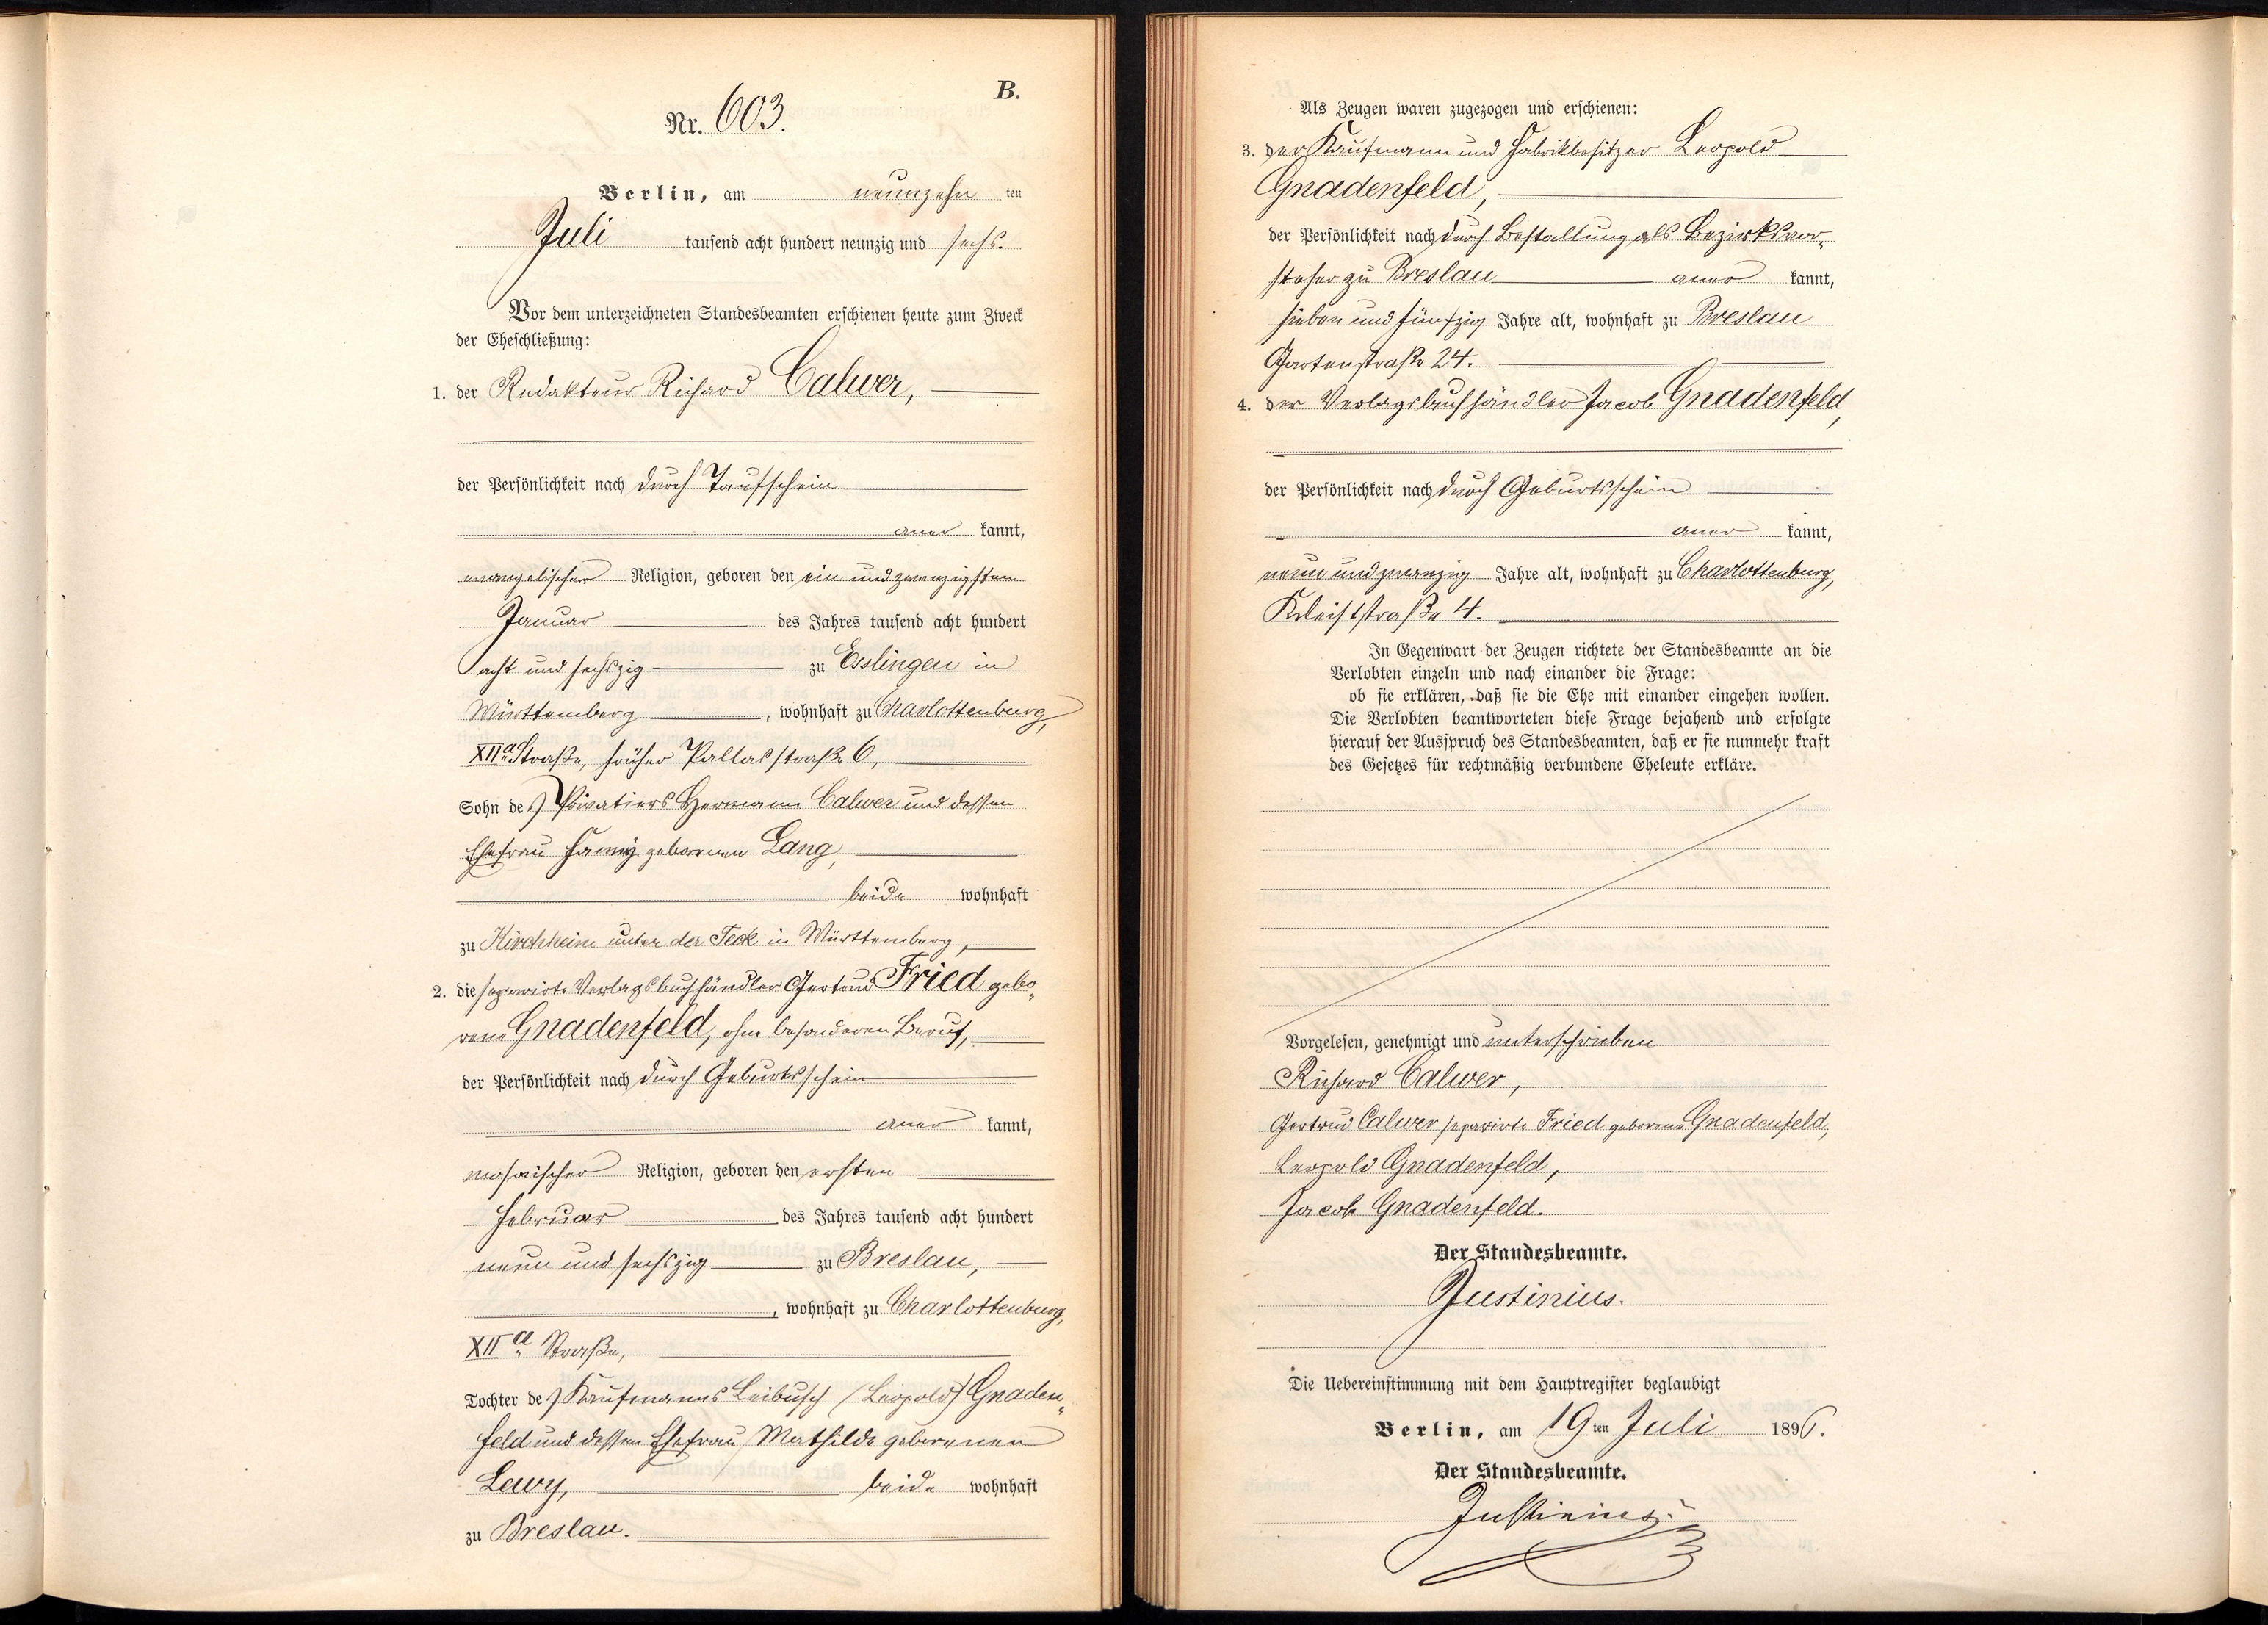 B.
Nr. 603.
Berlin, am neunzehn ten
Juli tausend acht hundert neunzig und sechs.
Vor dem unterzeichneten Standesbeamten erschienen heute zum Zweck
der Eheschließung:
1. der Redakteur Richard Calwer,
der Persönlichkeit nach durch Taufschein
aner kannt,
evangelischer Religion, geboren den ein und zwanzigsten
Januar des Jahres tausend acht hundert
acht und sechszig zu Esslingen in
Württemberg, wohnhaft zu Charlottenburg,
XIIa Straße, früher Pallasstraße 6,
Sohn des Privatiers Hermann Calwer und dessen
Ehefrau Fanny geborenen Lang,
beide wohnhaft
zu Kirchheim unter der Teck in Württemberg,
2. die separirte Verlagsbuchhändler Gertrud Fried gebo„
rene Gnadenfeld, ohne besonderen Beruf,
der Persönlichkeit nach durch Geburtsschein
aner kannt,
mosaischer Religion, geboren den ersten
Februar des Jahres tausend acht hundert
neun und sechszig zu Breslau,
, wohnhaft zu Charlottenburg,
XIIa Straße,
Tochter des Kaufmanns Leibusch (Leopold) Gnaden„
feld und dessen Ehefrau Mathilde geborenen
Lewy, beide wohnhaft
zu Breslau.
Als Zeugen waren zugezogen und erschienen:
3. der Kaufmann und Fabrikbesitzer Leopold
Gnadenfeld,
der Persönlichkeit nach durch Bestallung als Bezirksvor„
steher zu Breslau aner kannt,
sieben und fünfzig Jahre alt, wohnhaft zu Breslau
Gartenstraße 24.
4. der Verlagsbuchhändler Jacob Gnadenfeld,
der Persönlichkeit nach durch Geburtsschein
aner kannt,
neun und zwanzig Jahre alt, wohnhaft zu Charlottenburg,
Kleiststraße 4.
In Gegenwart der Zeugen richtete der Standesbeamte an die
Verlobten einzeln und nach einander die Frage:
ob sie erklären, daß sie die Ehe mit einander eingehen wollen.
Die Verlobten beantworteten diese Frage bejahend und erfolgte
hierauf der Ausspruch des Standesbeamten, daß er sie nunmehr kraft
des Gesetzes für rechtmäßig verbundene Eheleute erkläre.
Vorgelesen, genehmigt und unterschrieben
Richard Calwer,
Gertrud Calwer separirte Fried geborene Gnadenfeld,
Leopold Gnadenfeld,
Jacob Gnadenfeld.
Der Standesbeamte.
Justinius.
Die Uebereinstimmung mit dem Hauptregister beglaubigt
Berlin, am 19ten Juli 1896.
Der Standesbeamte.
Justinius.